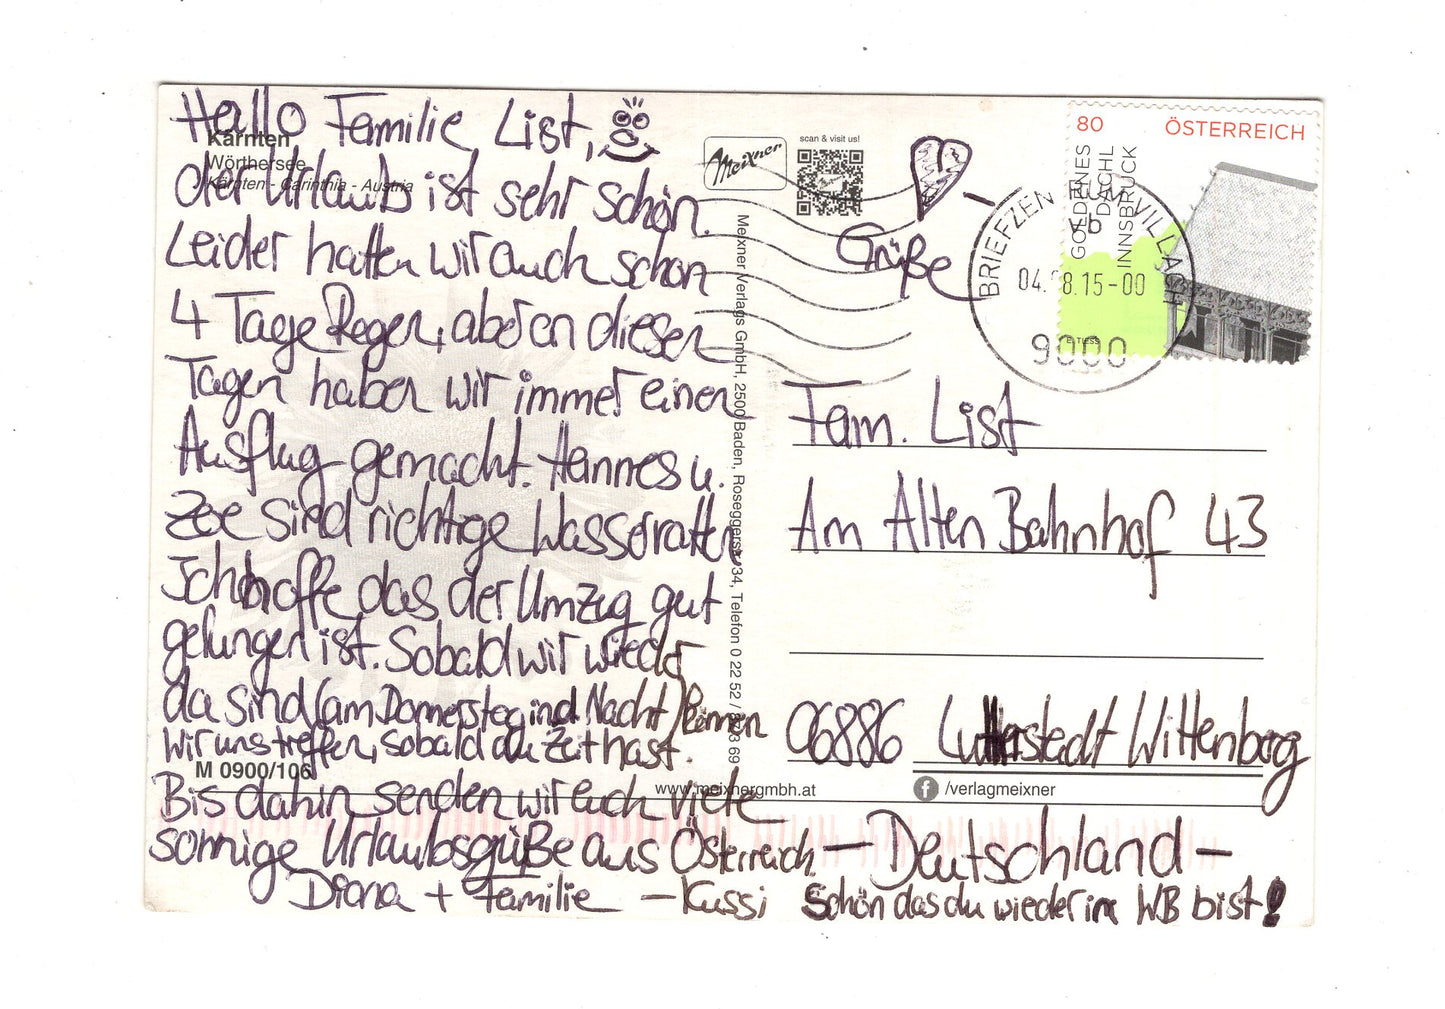 Hallo Familie List,
der Urlaub ist sehr schön.
Leider hatten wir auch schon
4 Tage Regen, aber an diesen
Tagen haben wir immer einen
Ausflug gemacht. Hannes u.
Zoe sind richtige Wasserratten
Ich hoffe das der Umzug gut
gelungen ist. Sobald wir wieder
da sind (am Donnerstag ind. Nacht) können
wir uns treffen, sobald du Zeit hast.
Bis dahin senden wir euch viele
sonnige Urlaubsgrüße aus Österreich.
Diana + Familie - Kussi
Schön das du wieder in WB bist!
Kärnten
Wörthersee
Kärnten - Carinthia - Austria
M 0900/106
Meixner
scan & visit us!
Meixner Verlags GmbH, 2500 Baden, Roseggerstr. 34, Telefon 0 22 52 / 8 03 69
www.meixnergmbh.at
/verlagmeixner
-Grüße
80 ÖSTERREICH
GOLDENES
DACHL
INNSBRUCK
BRIEFZENTRUM VILLACH
b
04. 8.15-00
9000
Fam. List
Am Alten Bahnhof 43
06886 Lutherstadt Wittenberg
- Deutschland -